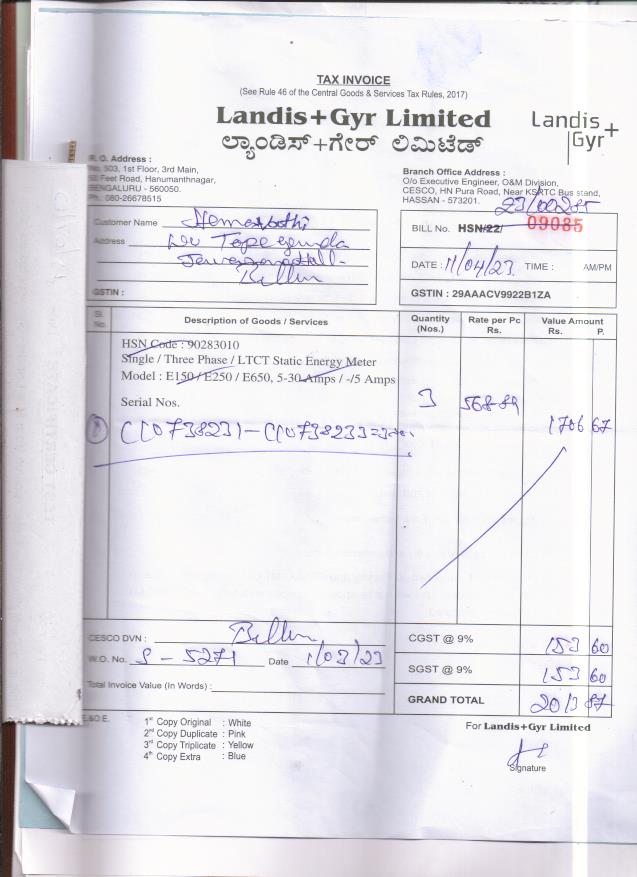 TAX INVOICE
(See Rule 46 of the Central Goods & Services Tax Rules, 2017)
Landis+Gyr Limited
ಲ್ಯಾಂಡಿಸ್+ಗೇರ್ ಲಿಮಿಟೆಡ್
Landis+
Gyr
R. O. Address :
No. 503, 1st Floor, 3rd Main,
Feet Road, Hanumanthnagar,
BENGALURU - 560050.
Ph. 080-26678515
Branch Office Address :
O/o Executive Engineer, O&M Division,
CESCO, HN Pura Road, Near KSRTC Bus stand,
HASSAN - 573201.
Customer Name
Address
GSTIN :
BILL No. HSN/22/ 09085
DATE : 11/04/23 TIME : AM/PM
GSTIN : 29AAACV9922B1ZA
Sl. No. Description of Goods / Services Quantity (Nos.) Rate per Pc Rs. Value Amount Rs. P.
HSN Code : 90283010
Single / Three Phase / LTCT Static Energy Meter
Model : E150 / E250 / E650, 5-30 Amps / -/5 Amps
Serial Nos. 3 568-89 1706 67
CC0738231-CC0738233=3
CESCO DVN :
W.O. No. S-5271 Date 1/03/23
Total Invoice Value (In Words) :
CGST @ 9% 153 60
SGST @ 9% 153 60
GRAND TOTAL 2013 87
E.&O.E.
1st Copy Original : White
2nd Copy Duplicate : Pink
3rd Copy Triplicate : Yellow
4th Copy Extra : Blue
For Landis+Gyr Limited
Signature